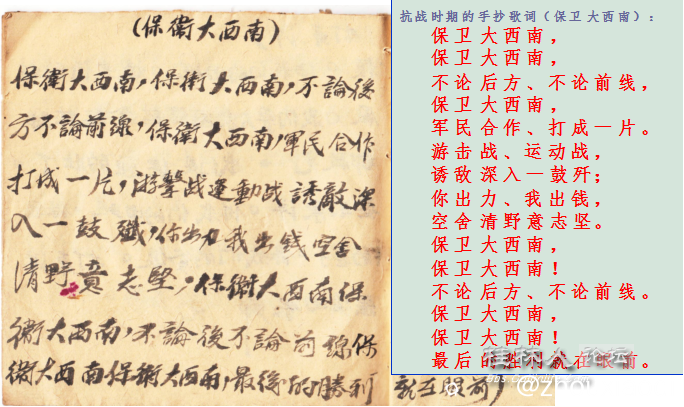 (保衛大西南)
保衛大西南，保衛大西南，不論後
方不論前線，保衛大西南，軍民合作
打成一片，游擊战運動战誘敵深
入一鼓殲，你出力我出钱空舍
清野意志堅，保衛大西南保
衛大西南，不論後不論前線保
衛大西南保衛大西南，最後的勝利
就在眼前
抗战时期的手抄歌词（保卫大西南）：
保卫大西南，
保卫大西南，
不论后方、不论前线，
保卫大西南，
军民合作、打成一片。
游击战、运动战，
诱敌深入一鼓歼；
你出力、我出钱，
空舍清野意志坚。
保卫大西南，
保卫大西南！
不论后方、不论前线。
保卫大西南，
保卫大西南！
最后的胜利就在眼前。
桂林人论坛